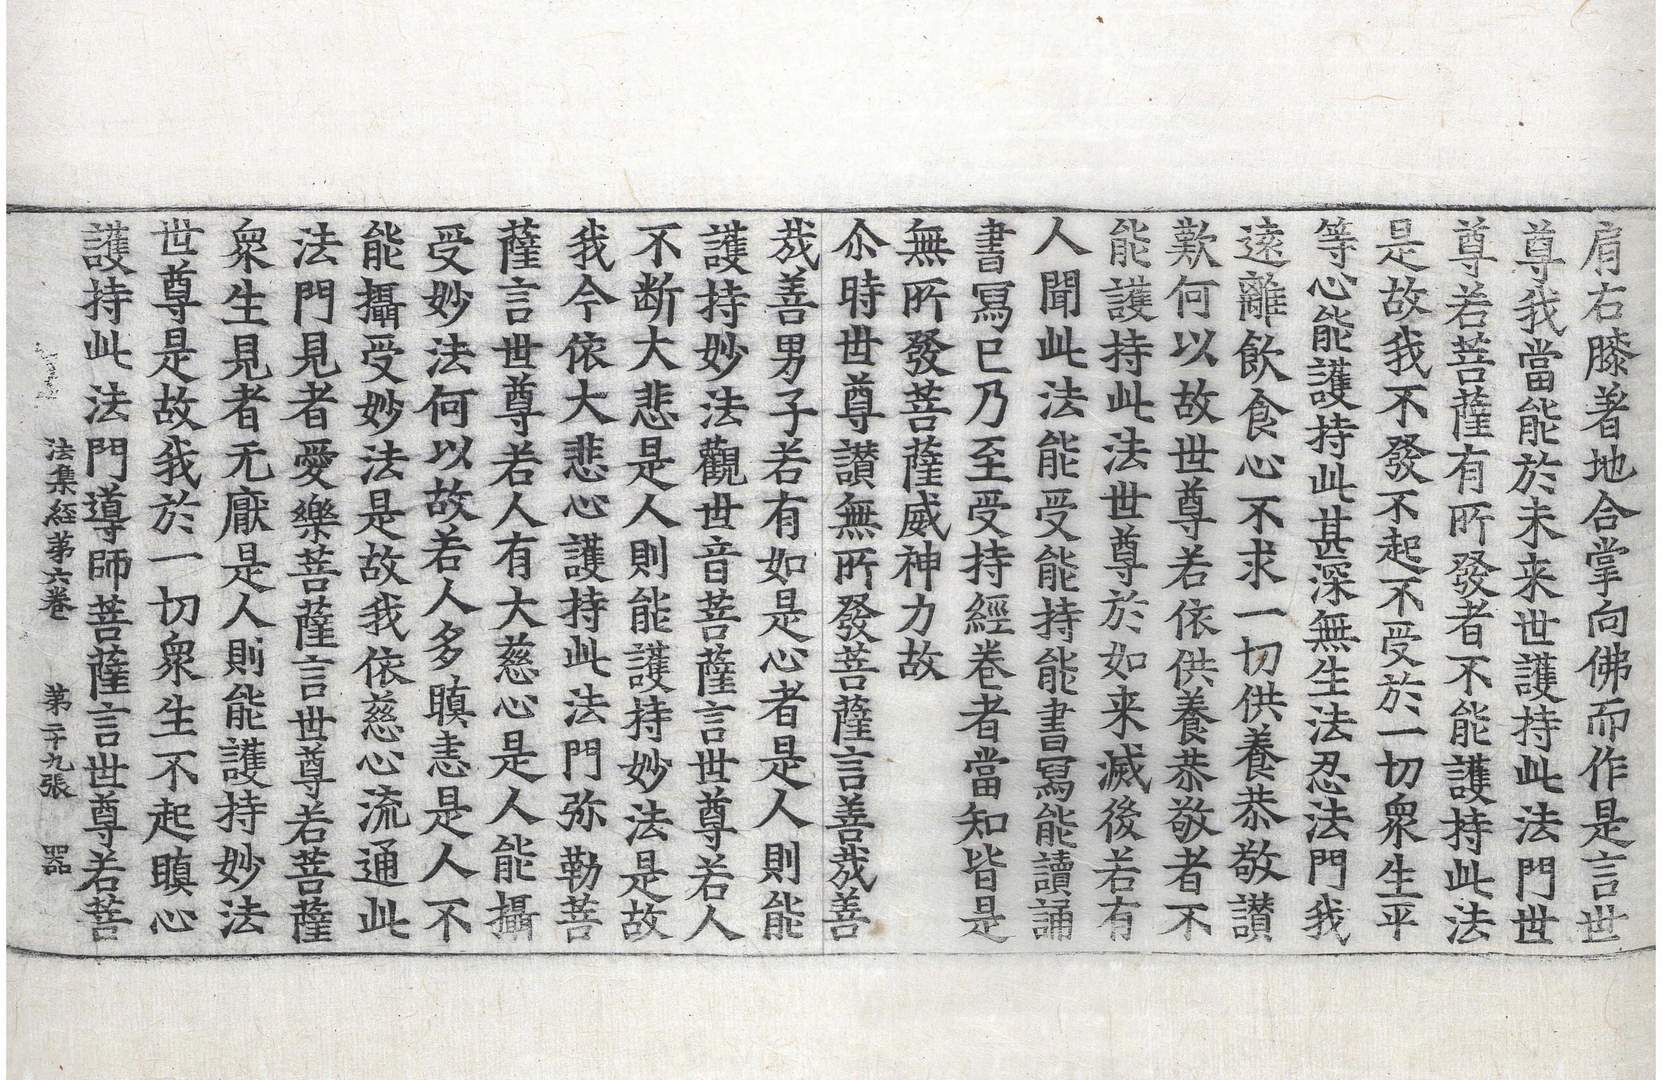 肩右膝著地合掌向佛而作是言世
尊我當能於未来世護持此法門世
尊若菩薩有所發者不能護持此法
是故我不發不起不受於一切衆生平
等心能護持此甚深無生法忍法門我
遠離飲食心不求一切供養恭敬讃
歎何以故世尊若依供養恭敬者不
能護持此法世尊於如来滅後若有
人聞此法能受能持能書寫能讀誦
書寫已乃至受持經卷者當知皆是
無所發菩薩威神力故
尒時世尊讃無所發菩薩言善哉善
哉善男子若有如是心者是人則能
護持妙法觀世音菩薩言世尊若人
不断大悲是人則能護持妙法是故
我今依大悲心護持此法門弥勒菩
薩言世尊若人有大慈心是人能攝
受妙法何以故若人多瞋恚是人不
能攝受妙法是故我依慈心流通此
法門見者愛樂菩薩言世尊若菩薩
衆生見者无厭是人則能護持妙法
世尊是故我於一切衆生不起瞋心
護持此法門導師菩薩言世尊若菩
法集経第六卷 第二十九張 器